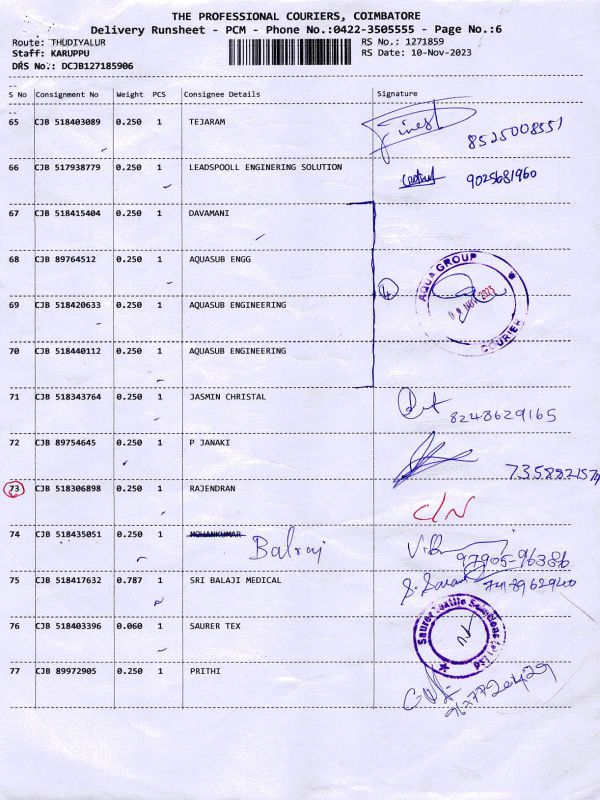 THE PROFESSIONAL COURIERS, COIMBATORE
Delivery Runsheet - PCM - Phone No.:0422-3505555 - Page No.:6
Route: THUDIYALUR RS No.: 1271859
Staff: KARUPPU RS Date: 10-Nov-2023
DRS No.: DCJB127185906
S No Consignment No Weight PCS Consignee Details Signature
65 CJB 518403089 0.250 1 TEJARAM 8525008551
66 CJB 517938779 0.250 1 LEADSPOOLL ENGINERING SOLUTION 9025681960
67 CJB 518415404 0.250 1 DAVAMANI
68 CJB 89764512 0.250 1 AQUASUB ENGG
4 AQUA GROUP
NOV 2023
COURIER
69 CJB 518420633 0.250 1 AQUASUB ENGINEERING
70 CJB 518440112 0.250 1 AQUASUB ENGINEERING
71 CJB 518343764 0.250 1 JASMIN CHRISTAL 8248629165
72 CJB 89754645 0.250 1 P JANAKI
73 CJB 518306898 0.250 1 RAJENDRAN C/N
74 CJB 518435051 0.250 1 MOHANKUMAR Balraj 97905-96386
75 CJB 518417632 0.787 1 SRI BALAJI MEDICAL
76 CJB 518403396 0.060 1 SAURER TEX
77 CJB 89972905 0.250 1 PRITHI